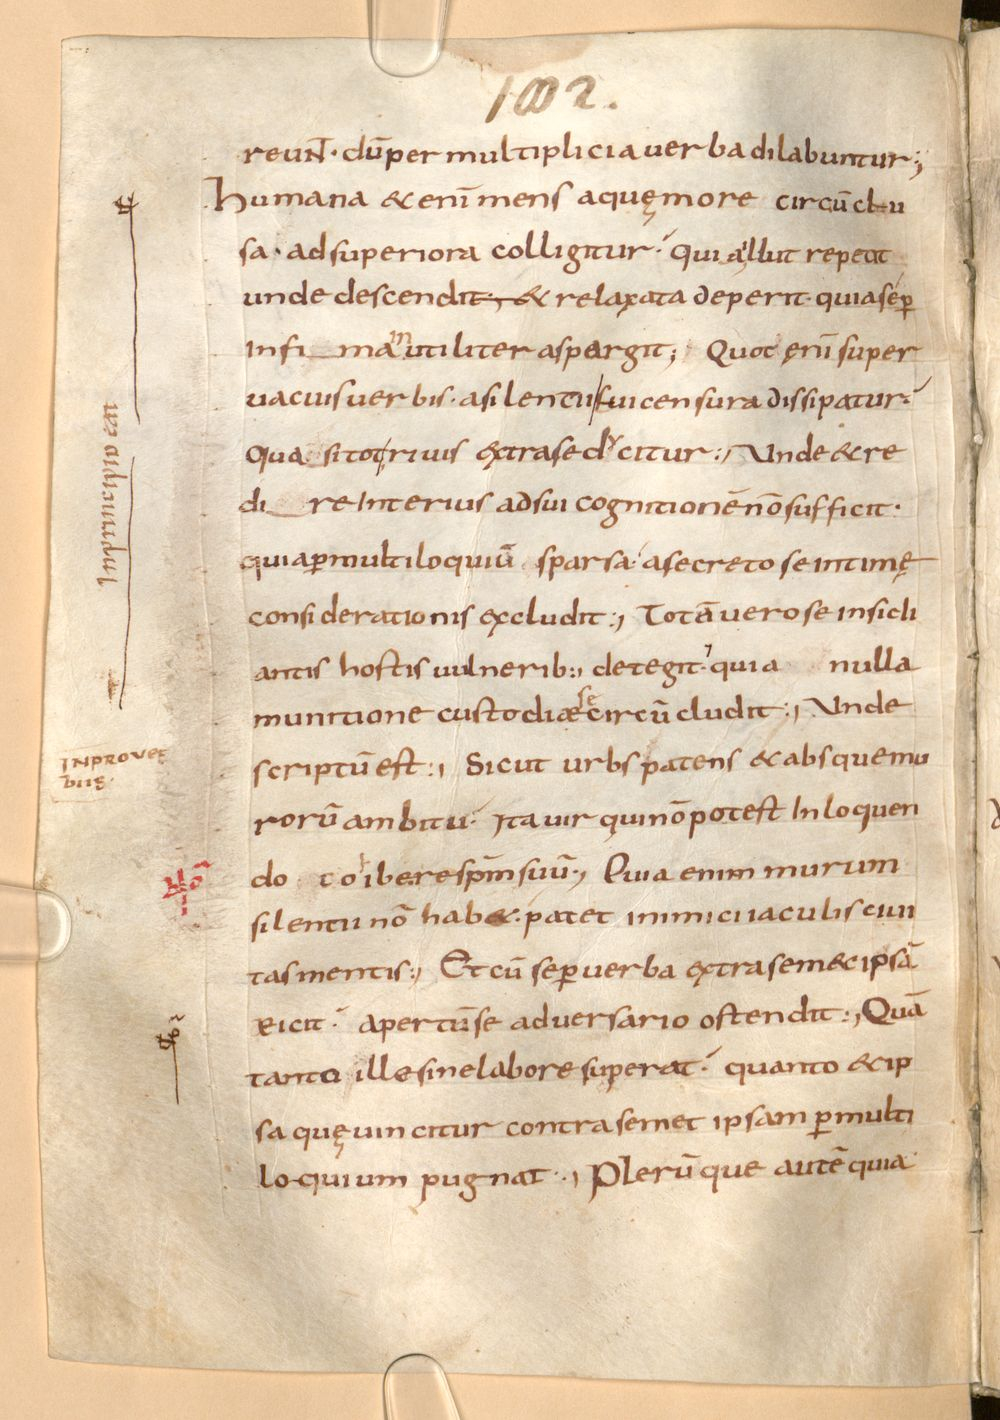 1002.
reuñ · dū per multiplicia uerba dilabuntur ·;
Humana & enī mens aquę more circū clu
sa · ad superiora colligitur · Qui a illut repetit
unde descendit, & relaxata deperit · quia se p̄
Infi ma inutiliter aspergit; Quot enī super
uacuis uerbis · a silentii sui censura dissipatur ·
Quasi tot riuis extra se ducitur :, Unde & re
di re Interius ad sui cognitionē nō sufficit ·
quia p multiloquiū sparsa · a secreto se intimę
considerationis excludit :, Totā uero se insidi
antis hostis uulnerib:, detegit · quia nulla
munitione custodiæ se circū cludit :, Unde
scriptū est :, Sicut urbs patens & absque mu
rorū ambitu · Ita uir qui nō potest In loquen
do cohibere sp̄m suū ·, Quia enim murum
silentii nō hab& · patet inimici iaculis ciui
tas mentis :, Et cū se p uerba extra sem&ipsā
eicit · apertū se aduersario ostendit :, Quā
tanto ille sine labore superat · quanto & ip
sa quę uincitur contra semet ipsam p multi
loquium pugnat ·, Plerūque autē quia
In principio ean
INPROVER
biis ·